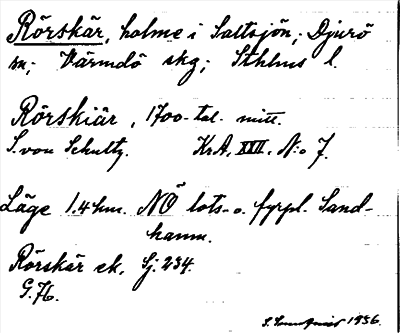 Rörskär, holme i Saltsjön; Djurö
sn; Värmdö skg; Sthlms l.
Rörskiär, 1700-tal. mitt.
S. von Schultz. KrA. XXII. N:o 7.
Läge 1.4 km. NÖ lots- o. fyrpl. Sand-
hamn.
Rörskär ek. Sj. 234.
G. 76.
1936.